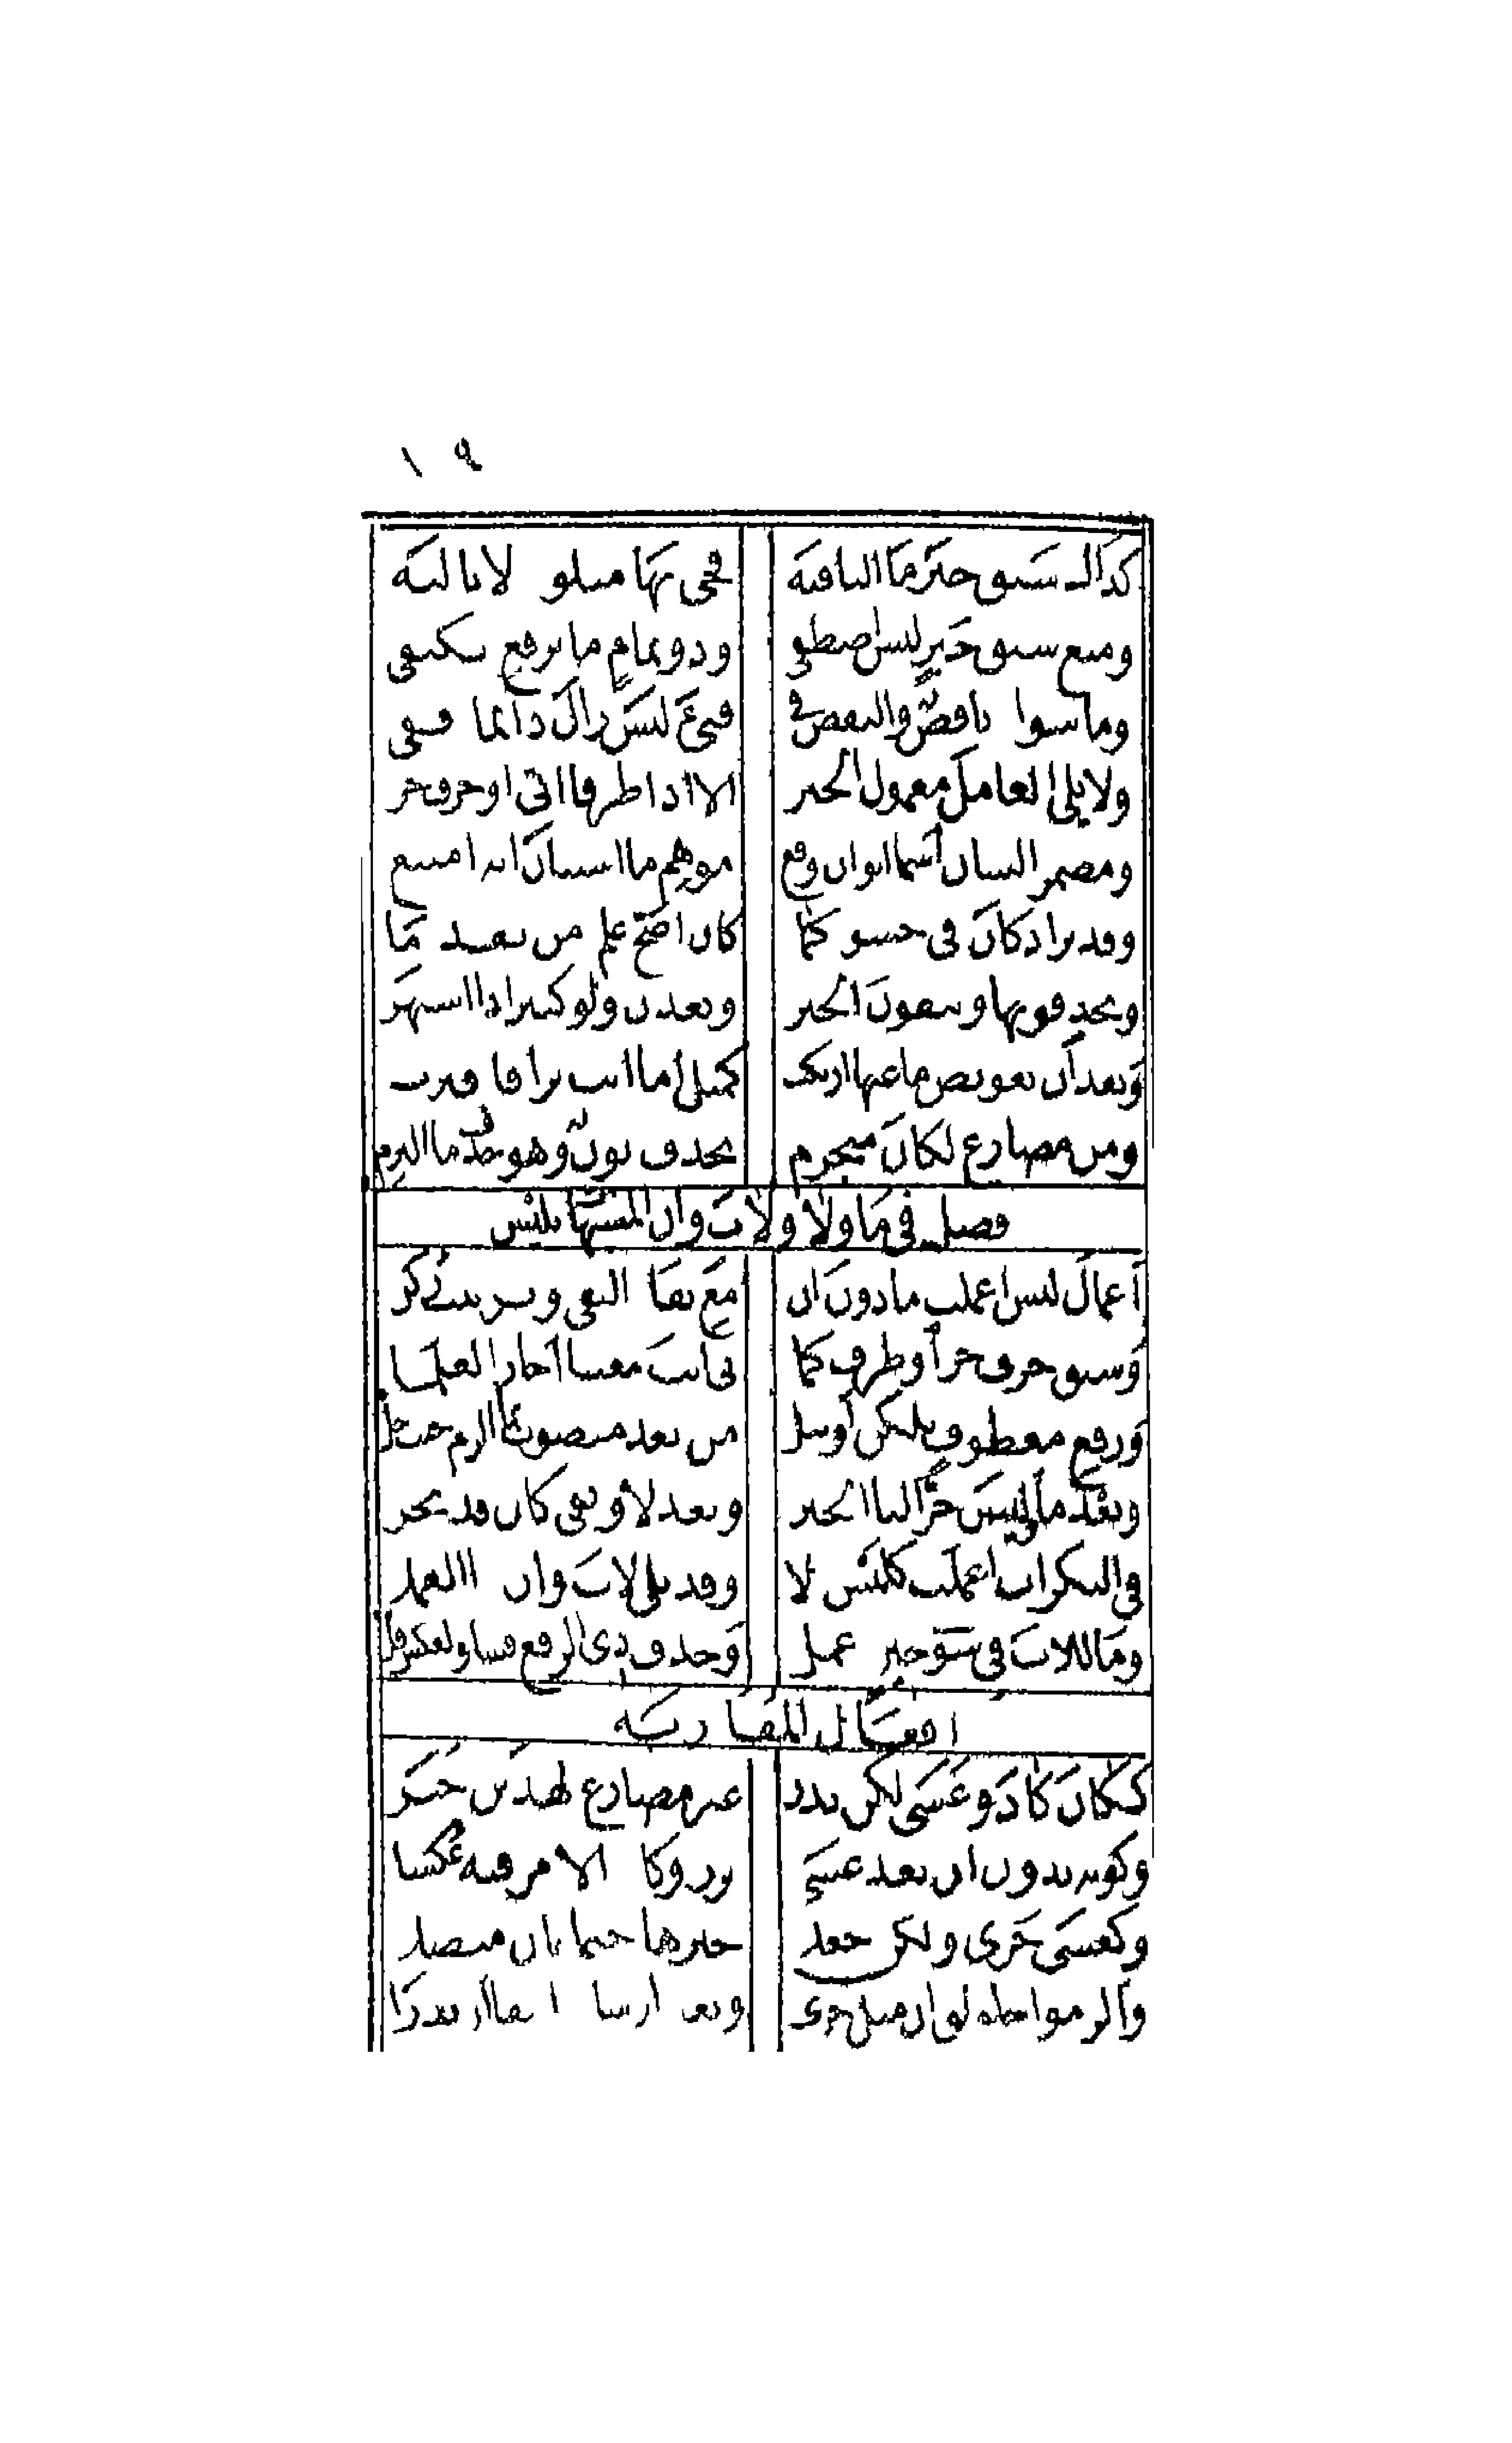 ١٩
كذاك سبق خبر ما النافيه فجئ بها متلوة لا تاليه
ومنع سبق خبر ليس اصطفي وذو تمام ما برفع يكتفي
وما سواه ناقص والنقص في فتئ ليس زال دائما قفي
ولا يلي العامل معمول الخبر الا اذا ظرفا اتى او حرف جر
ومضمر الشان اسما انو ان وقع موهم ما استبان انه امتنع
وقد تزاد كان في حشو كما كان اصح علم من تقدما
ويحذفونها ويبقون الخبر وبعد ان ولو كثيرا ذا اشتهر
وبعد ان تعويض ما عنها ارتكب كمثل اما انت برا فاقترب
ومن مضارع لكان منجزم تحذف نون وهو حذف ما التزم
فصل في ما ولا ولات وان المشبهات بليس
اعمال ليس اعملت ما دون ان مع بقا النفي وترتيب زكن
وسبق حرف جر او ظرف كما بي انت معنيا اجاز العلما
ورفع معطوف بلكن او ببل من بعد منصوب بما الزم حيث حل
وبعد ما وليس جر البا الخبر وبعد لا ونفي كان قد يجر
في النكرات اعملت كليس لا وقد تلي لات وان ذا العملا
وما للات في سوى حين عمل وحذف ذي الرفع فشا والعكس قل
افعال المقاربه
ككان كاد وعسى لكن ندر غير مضارع لهذين خبر
وكونه بدون ان بعد عسى نزر وكاد الامر فيه عكسا
وكعسى حرى ولكن جعلا خبرها حتما بان متصلا
والزموا اخلولق ان مثل حرى وبعد اوشك انتفا ان نزرا